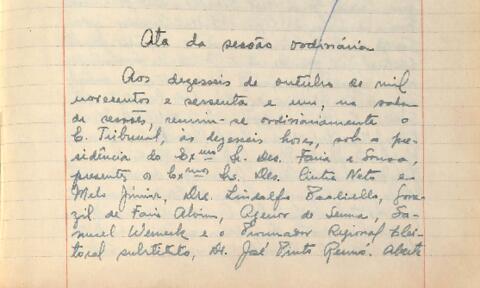 Ata da sessão ordinária
Aos dezesseis de outubro de mil
novecentos e sessenta e um, na sala
de sessões, reuniu-se ordinariamente o
E. Tribunal, às dezesseis horas, sob a pre-
sidência do Exmo Sr. Des. Faria e Sousa,
presentes os Exmos Srs. Des. Cintra Neto e
Melo Júnior, Drs. Lindolfo Gon-
zil de Faria Alvim, Agenor de Senna, Sa-
muel Werneck e o Procurador Regional Elei-
toral substituto, Dr. José Pinto Renó. Aberta